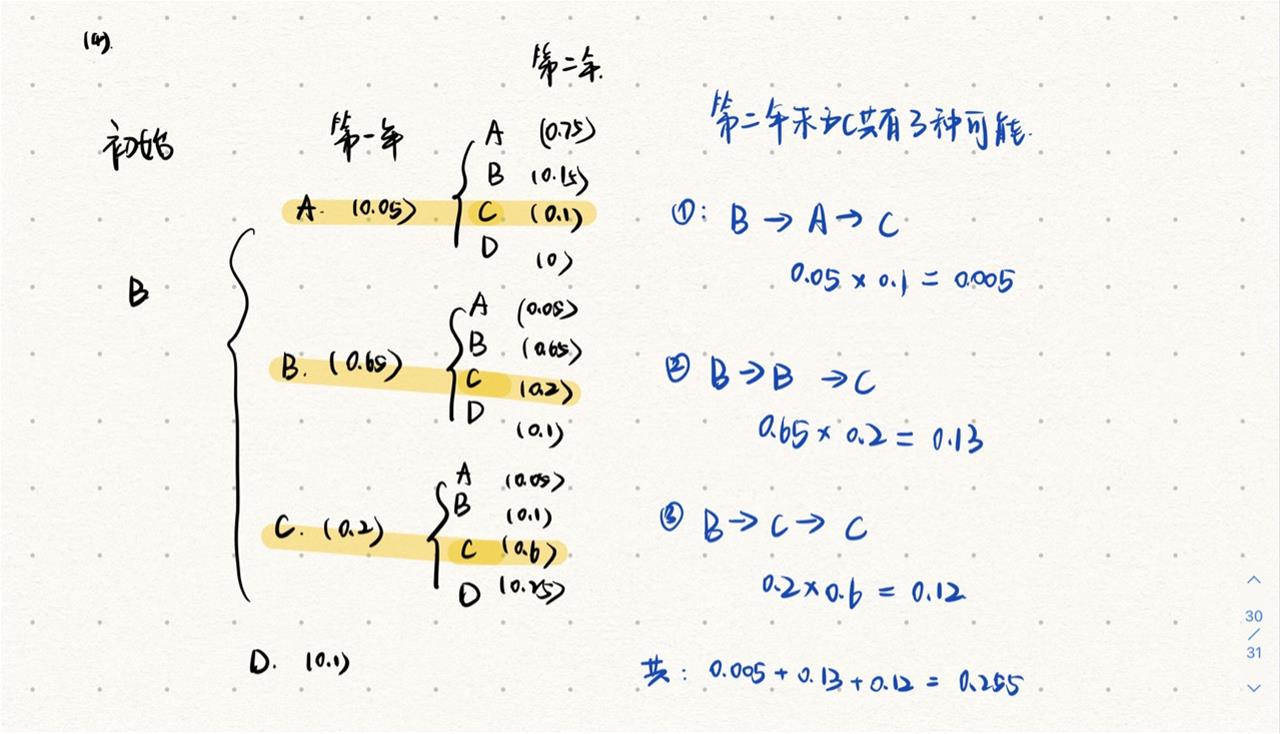 (4).
第二年.
初始
第一年
A (0.75)
B (0.15)
A. (0.05)
C (0.1)
D (0)
B
A (0.05)
B (0.65)
B. (0.65)
C (0.2)
D (0.1)
A (0.05)
B (0.1)
C. (0.2)
C (0.6)
D (0.25)
D. (0.1)
第二年来到C共有3种可能.
①: B → A → C
0.05 × 0.1 = 0.005
② B → B → C
0.65 × 0.2 = 0.13
③ B → C → C
0.2 × 0.6 = 0.12
共: 0.005 + 0.13 + 0.12 = 0.255
30
/
31